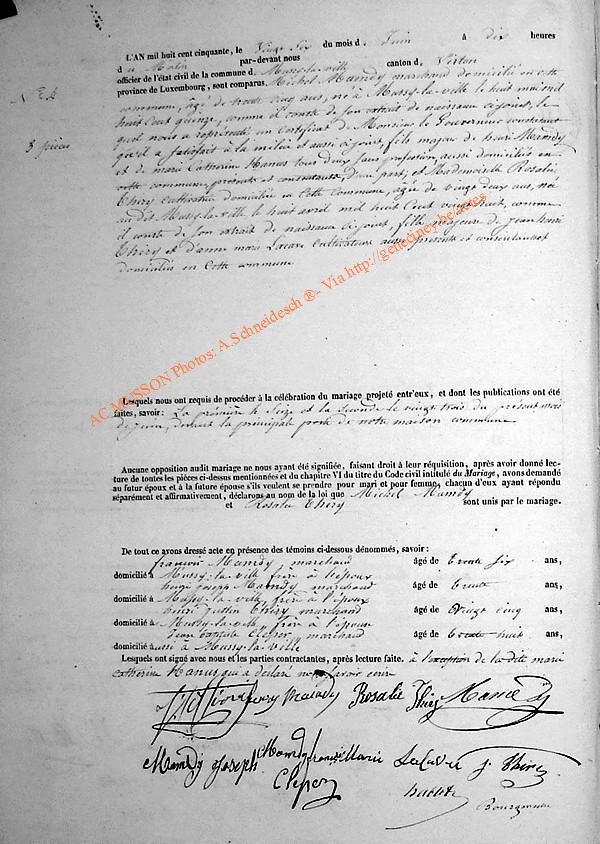 N.° 4
3 pièces
L'AN mil huit cent cinquante, le Vingt Six du mois d. Juin à dix heures
d u Matin par-devant nous
officier de l'état civil de la commune d. Mussy-la-ville canton d. Virton
province de Luxembourg, sont comparus Michel Mamdy marchand domicilié en cette
commune, âgé de trente cinq ans, né à Mussy-la-Ville le huit mai mil
huit Cent quinze, comme il conste de son extrait de naissance ci joint, le
quel nous a représenté un Certificat de Monsieur le Gouverneur constatant
qu'il a satisfait à la milice et aussi ci joint, fils majeur de henri Mamdy
et de marie Catherine Hanus tous deux sans profession, aussi domiciliés en
cette commune, présents et consentants, d'une part, et Mademoiselle Rosalie
Thiry Cultivatrice domiciliée en Cette Commune, âgée de vingt deux ans, née
au dit Mussy-la-ville le huit avril mil huit Cent vingt huit, comme
il conste de son extrait de naissance ci joint, fille majeure de jean henri
Thiry et d'anne marie Lavaux Cultivateurs aussi présents et consentants et
domiciliés en Cette commune
Lesquels nous ont requis de procéder à la célébration du mariage projeté entr'eux, et dont les publications ont été
faites, savoir: La première le Seize et la Seconde le vingt trois du présent mois
de juin, devant la principale porte de notre maison commune
Aucune opposition audit mariage ne nous ayant été signifiée, faisant droit à leur réquisition, après avoir donné lec-
ture de toutes les pièces ci-dessus mentionnées et du chapitre VI du titre du Code civil intitulé du Mariage, avons demandé
au futur époux et à la future épouse s'ils veulent se prendre pour mari et pour femme, chacun d'eux ayant répondu
séparément et affirmativement, déclarons au nom de la loi que Michel Mamdy
et Rosalie Thiry sont unis par le mariage.
De tout ce avons dressé acte en présence des témoins ci-dessous dénommés, savoir:
françois Mamdy, marchand âgé de trente Six ans,
domicilié à Mussy-la-ville frère à l'époux
henri joseph Mamdy marchand âgé de trente ans,
domicilié à Mussy-la-ville, frère à l'époux
henri Justin Thiry marchand âgé de Vingt Cinq ans,
domicilié à Mussy-la-ville, frère à l'épouse
jean baptiste Cleper, marchand âgé de trente huit ans,
domicilié aussi à Mussy-la-ville
Lesquels ont signé avec nous et les parties contractantes, après lecture faite. à l'exception de la dite marie
Catherine Hanus qui a déclaré ne savoir écrire
Rosalie Thiry Mamdy
Mamdy Joseph Mamdy françois Marie J Thiry
Cleper Bourgmestre
AC MUSSON Photos: A.Schneidesch ®- Via http://geneciney.be.actes